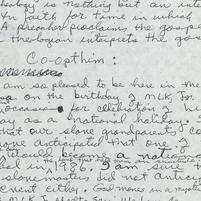 theology is nothing but an inte
in faith for time in which
A preacher proclaims the gospe
theologian interprets the gos
Co-opthim:
am so pleased to be here in the
on the birthday of MLK, for
occasion for celebration of
day as a national holiday.
that our slave grandparents co
one anticipated that one of
would become a nation
in 1986. I am sure t
slave did not anticip
erent either. God moves in a myste